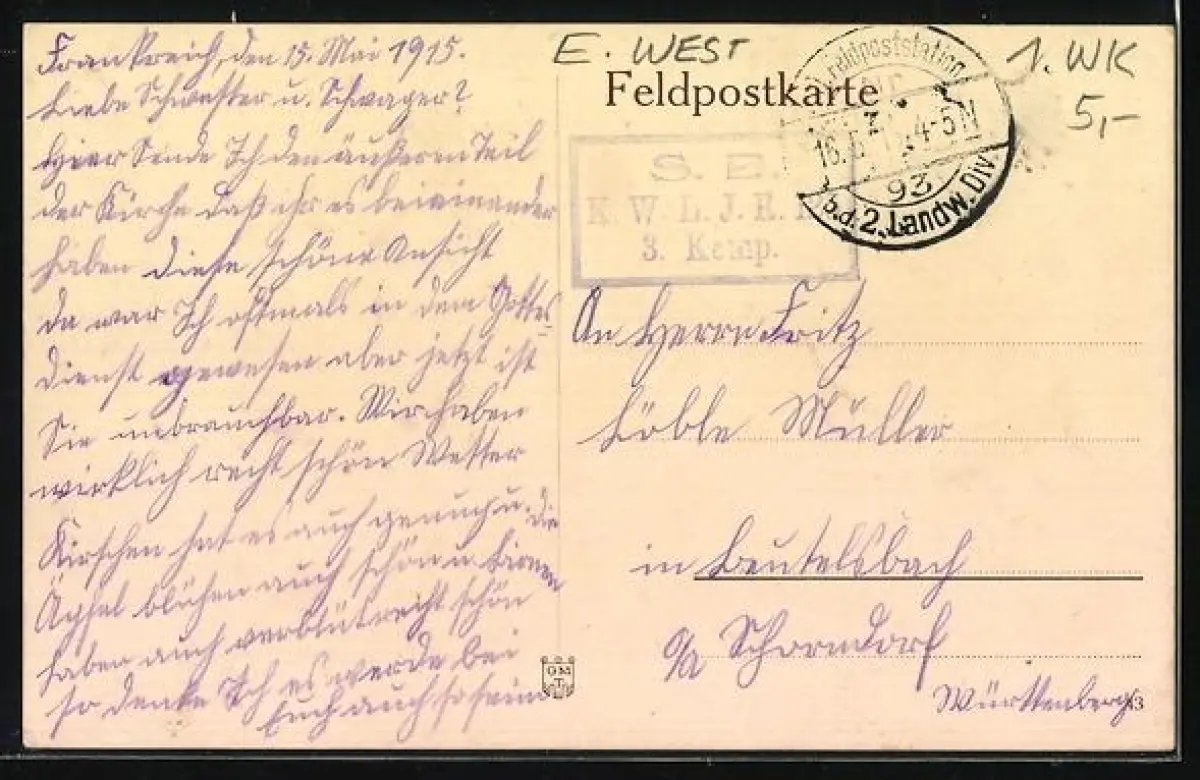 Frankreich, den 15. Mai 1915.
Liebe Schwester u. Schwager?
Hier Sende Ich den äußeren Teil
der Kirche daß ihr es beieinander
haben diese schöne Ansicht
da war Ich oftmals in dem Gottes-
dienst gewesen aber jetzt ist
Sie unbrauchbar. Wir haben
wirklich recht schön Wetter
Kirschen hat es auch genuch u. die
Äpfel blühen auch schön u Birnen
haben auch verblüt recht schön
so denke Ich es werde bei
Euch auch so sein
E. WEST
1. WK
5,-
Feldpostkarte
Feldpoststation
Nr
16.5. 4-5N
93
b.d. 2. Landw. Div.
S. B.
K. W. L. J. R.
3. Komp.
An Herrn Fritz
Löble Müller
in Beutelsbach
o/a Schorndorf
Württemberg
GM
T
43